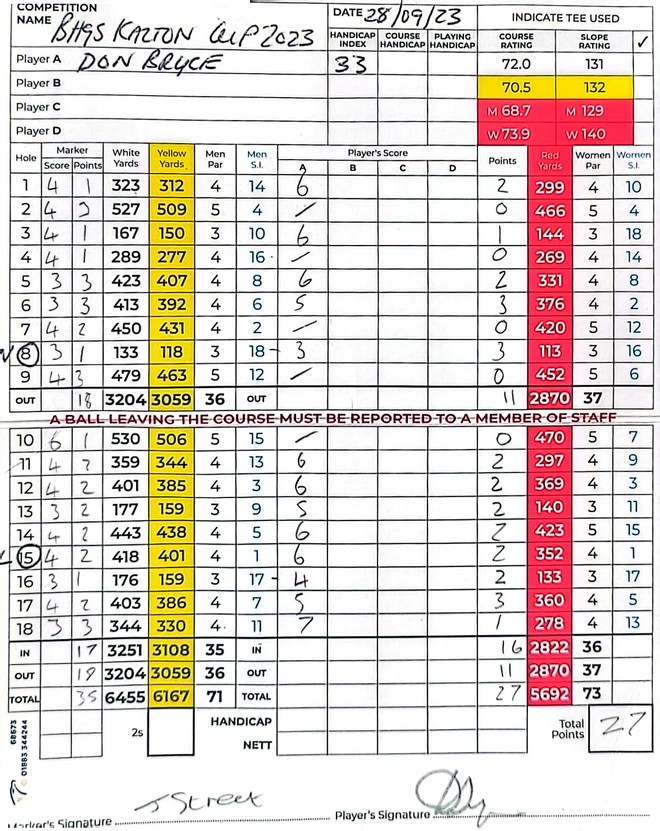 COMPETITION NAME BHGS KALTON CUP 2023 DATE 28/09/23 INDICATE TEE USED
HANDICAP INDEX COURSE HANDICAP PLAYING HANDICAP COURSE RATING SLOPE RATING ✓
Player A DON BRYCE 33 72.0 131
Player B 70.5 132
Player C M 68.7 M 129
Player D W 73.9 W 140
Hole Marker Score Points White Yards Yellow Yards Men Par Men S.I. Player's Score A B C D Points Red Yards Women Par Women S.I.
1 4 1 323 312 4 14 6 2 299 4 10
2 4 3 527 509 5 4 / 0 466 5 4
3 4 1 167 150 3 10 6 1 144 3 18
4 4 1 289 277 4 16 / 0 269 4 14
5 3 3 423 407 4 8 6 2 331 4 8
6 3 3 413 392 4 6 5 3 376 4 2
7 4 2 450 431 4 2 / 0 420 5 12
8 3 1 133 118 3 18 3 3 113 3 16
9 4 3 479 463 5 12 / 0 452 5 6
OUT 18 3204 3059 36 OUT 11 2870 37
A BALL LEAVING THE COURSE MUST BE REPORTED TO A MEMBER OF STAFF
10 6 1 530 506 5 15 / 0 470 5 7
11 4 2 359 344 4 13 6 2 297 4 9
12 4 2 401 385 4 3 6 2 369 4 3
13 3 2 177 159 3 9 5 2 140 3 11
14 4 2 443 438 4 5 6 2 423 5 15
15 4 2 418 401 4 1 6 2 352 4 1
16 3 1 176 159 3 17 4 2 133 3 17
17 4 2 403 386 4 7 5 3 360 4 5
18 3 3 344 330 4 11 7 1 278 4 13
IN 17 3251 3108 35 IN 16 2822 36
OUT 18 3204 3059 36 OUT 11 2870 37
TOTAL 35 6455 6167 71 TOTAL 27 5692 73
2s HANDICAP Total Points 27
NETT
68673
01883 344244
Marker's Signature J Street Player's Signature